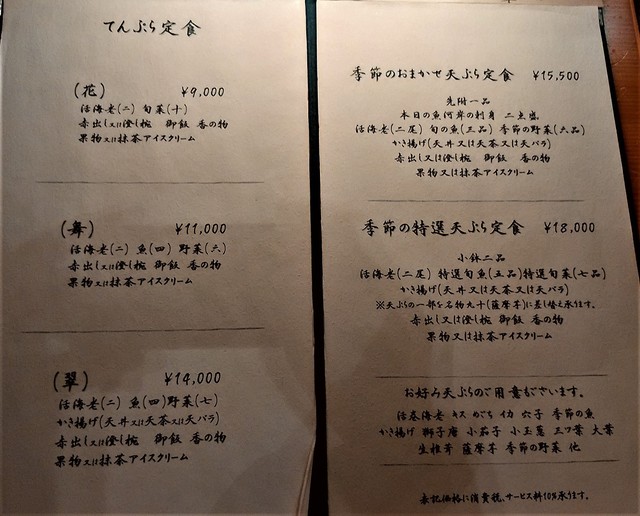 てんぷら定食
(花) ¥9,000
活海老(二) 旬菜(十)
赤出し又は澄し椀 御飯 香の物
果物又は抹茶アイスクリーム
(舞) ¥11,000
活海老(二) 魚(四) 野菜(六)
赤出し又は澄し椀 御飯 香の物
果物又は抹茶アイスクリーム
(翠) ¥14,000
活海老(二) 魚(四)野菜(七)
かき揚げ(天丼又は天茶又は天バラ)
赤出し又は澄し椀 御飯 香の物
果物又は抹茶アイスクリーム
季節のおまかせ天ぷら定食 ¥15,500
先附一品
本日の魚河岸の刺身 二点盛
活海老(二尾) 旬の魚(三品) 季節の野菜(六品)
かき揚げ(天丼又は天茶又は天バラ)
赤出し又は澄し椀 御飯 香の物
果物又は抹茶アイスクリーム
季節の特選天ぷら定食 ¥18,000
小鉢二品
活海老(二尾) 特選旬魚(五品)特選旬菜(七品)
かき揚げ(天丼又は天茶又は天バラ)
※天ぷらの一部を名物九十(薩摩芋)に差し替え承ります。
赤出し又は澄し椀 御飯 香の物
果物又は抹茶アイスクリーム
お好み天ぷらのご用意もございます。
活巻海老 キス めごち イカ 穴子 季節の魚
かき揚げ 獅子唐 小茄子 小玉葱 三つ葉 大葉
生椎茸 薩摩芋 季節の野菜 他
表記価格に消費税、サービス料10%承ります。